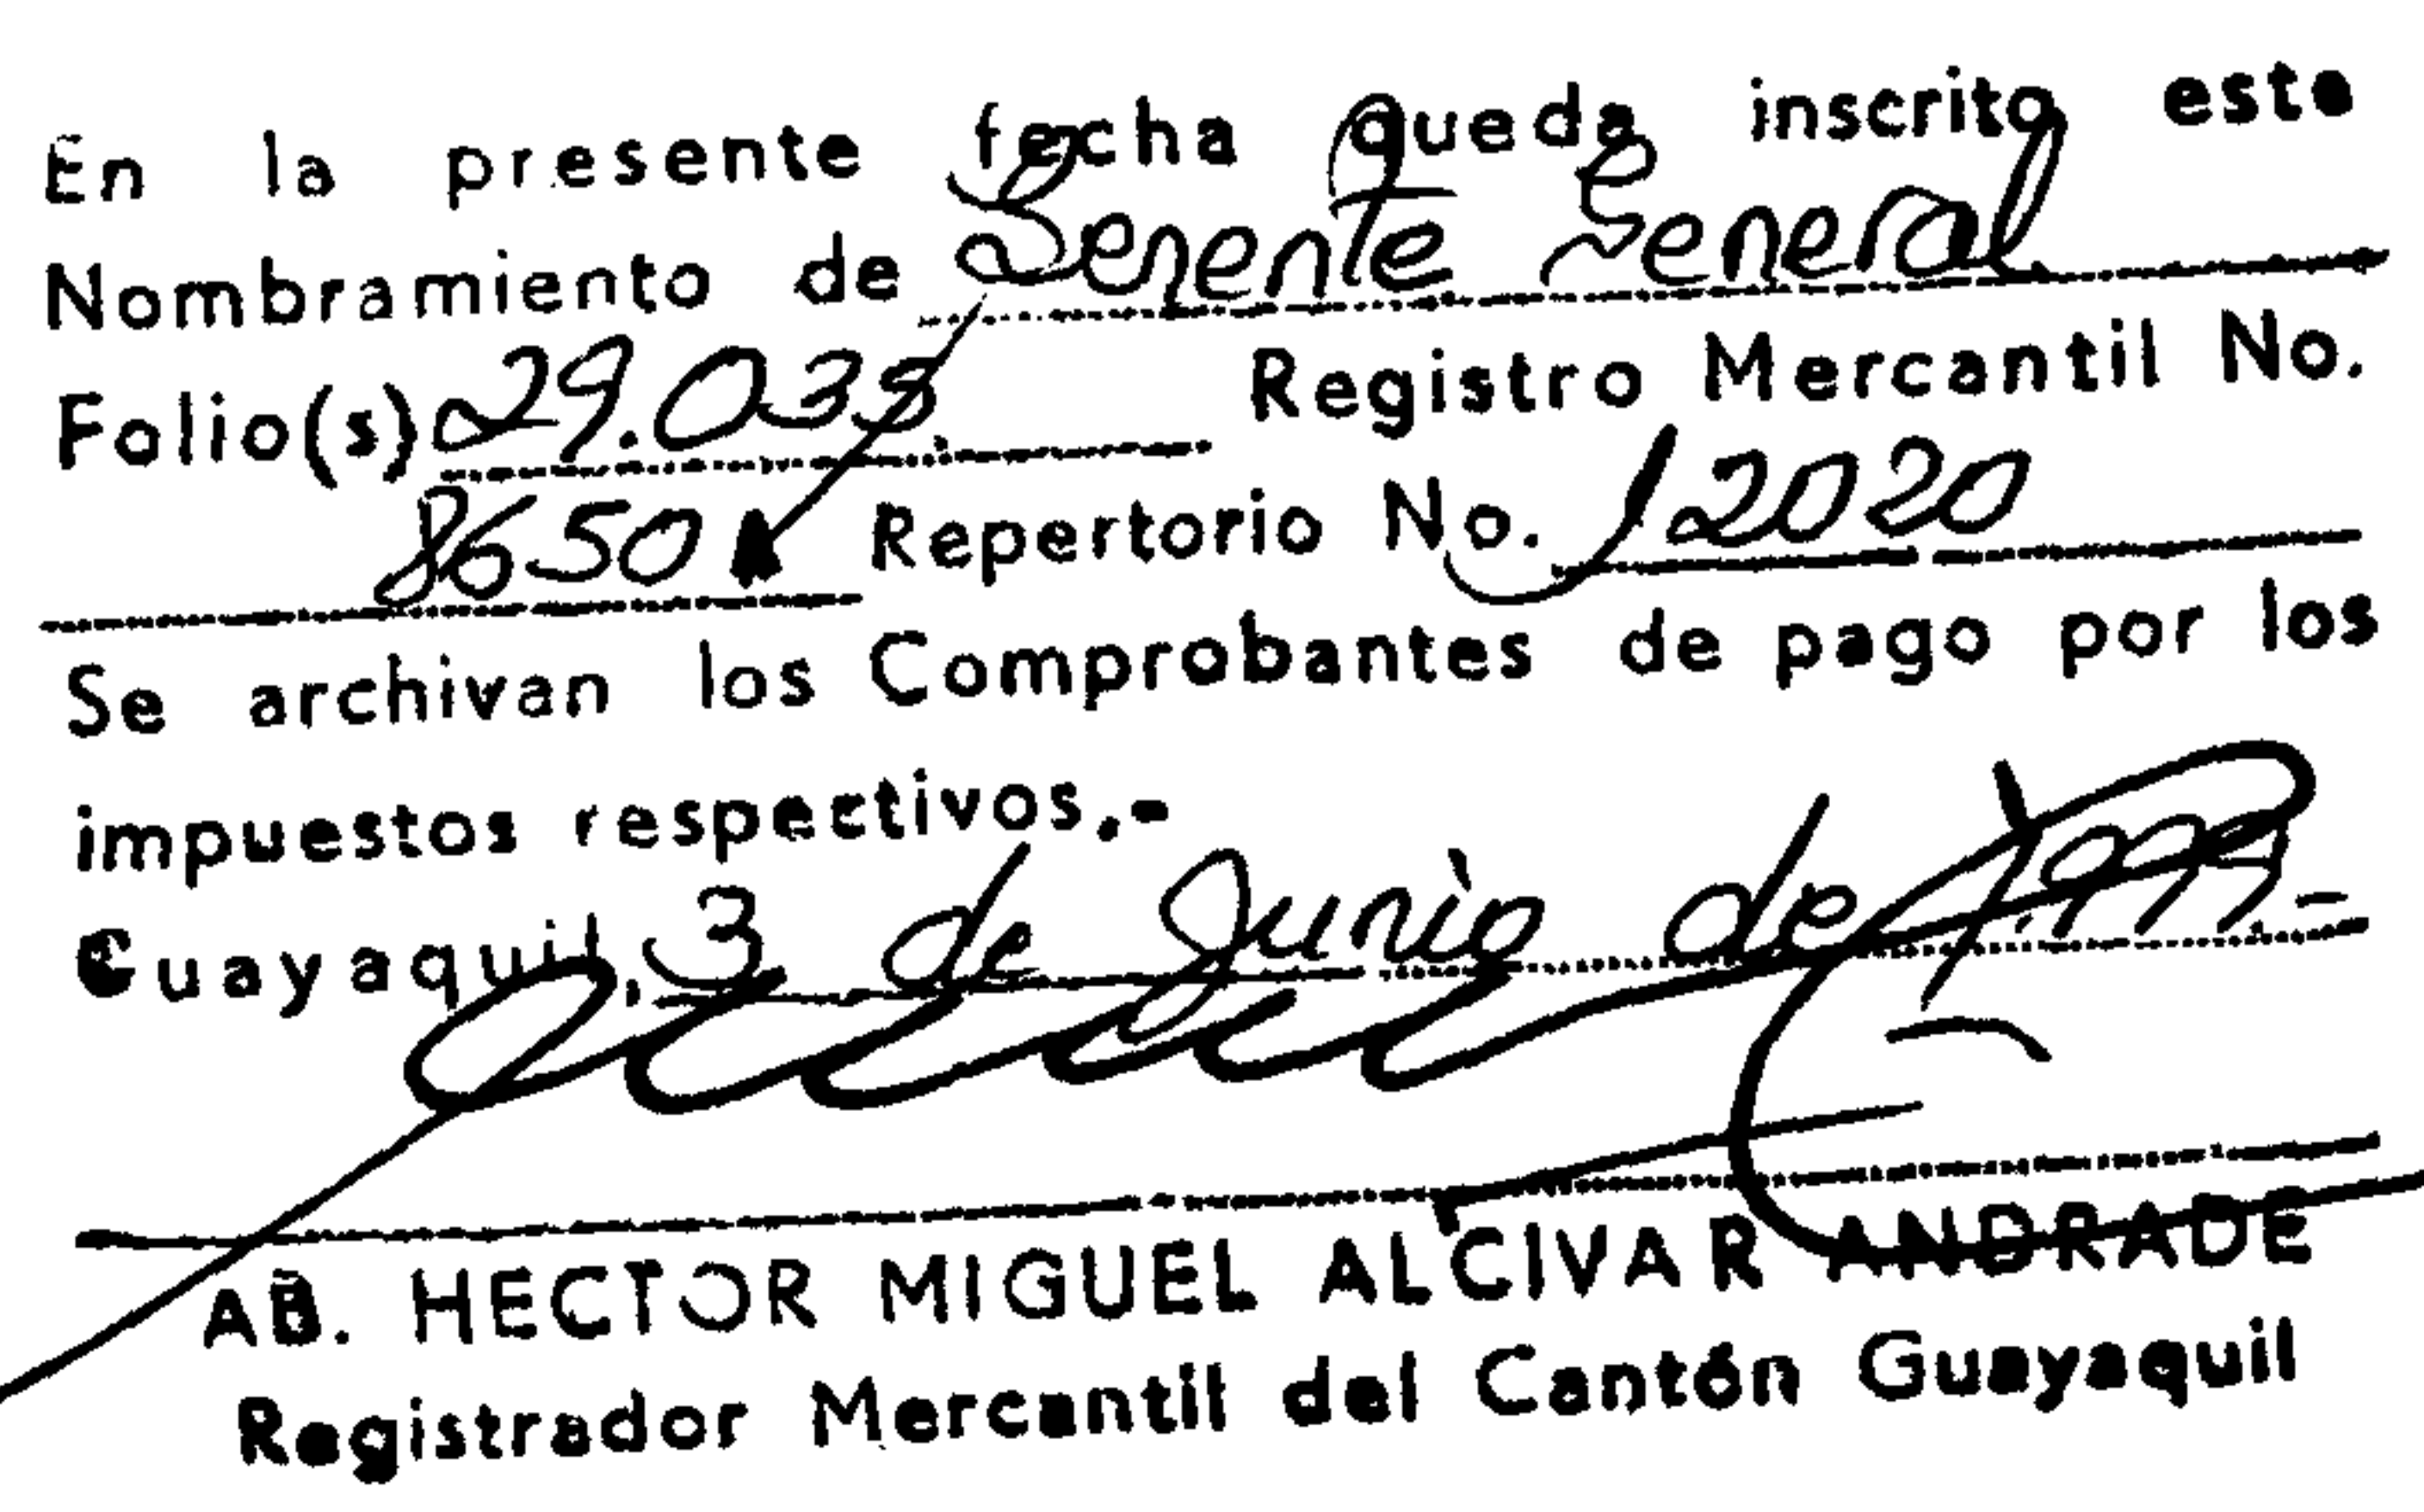 En la presente fecha queda inscrito este
Nombramiento de Gerente General
Folio(s) 29.033 Registro Mercantil No.
8650 Repertorio No. 12020
Se archivan los Comprobantes de pago por los
impuestos respectivos.-
Guayaquil, 3 de Junio de
AB. HECTOR MIGUEL ALCIVAR ANDRADE
Registrador Mercantil del Cantón Guayaquil